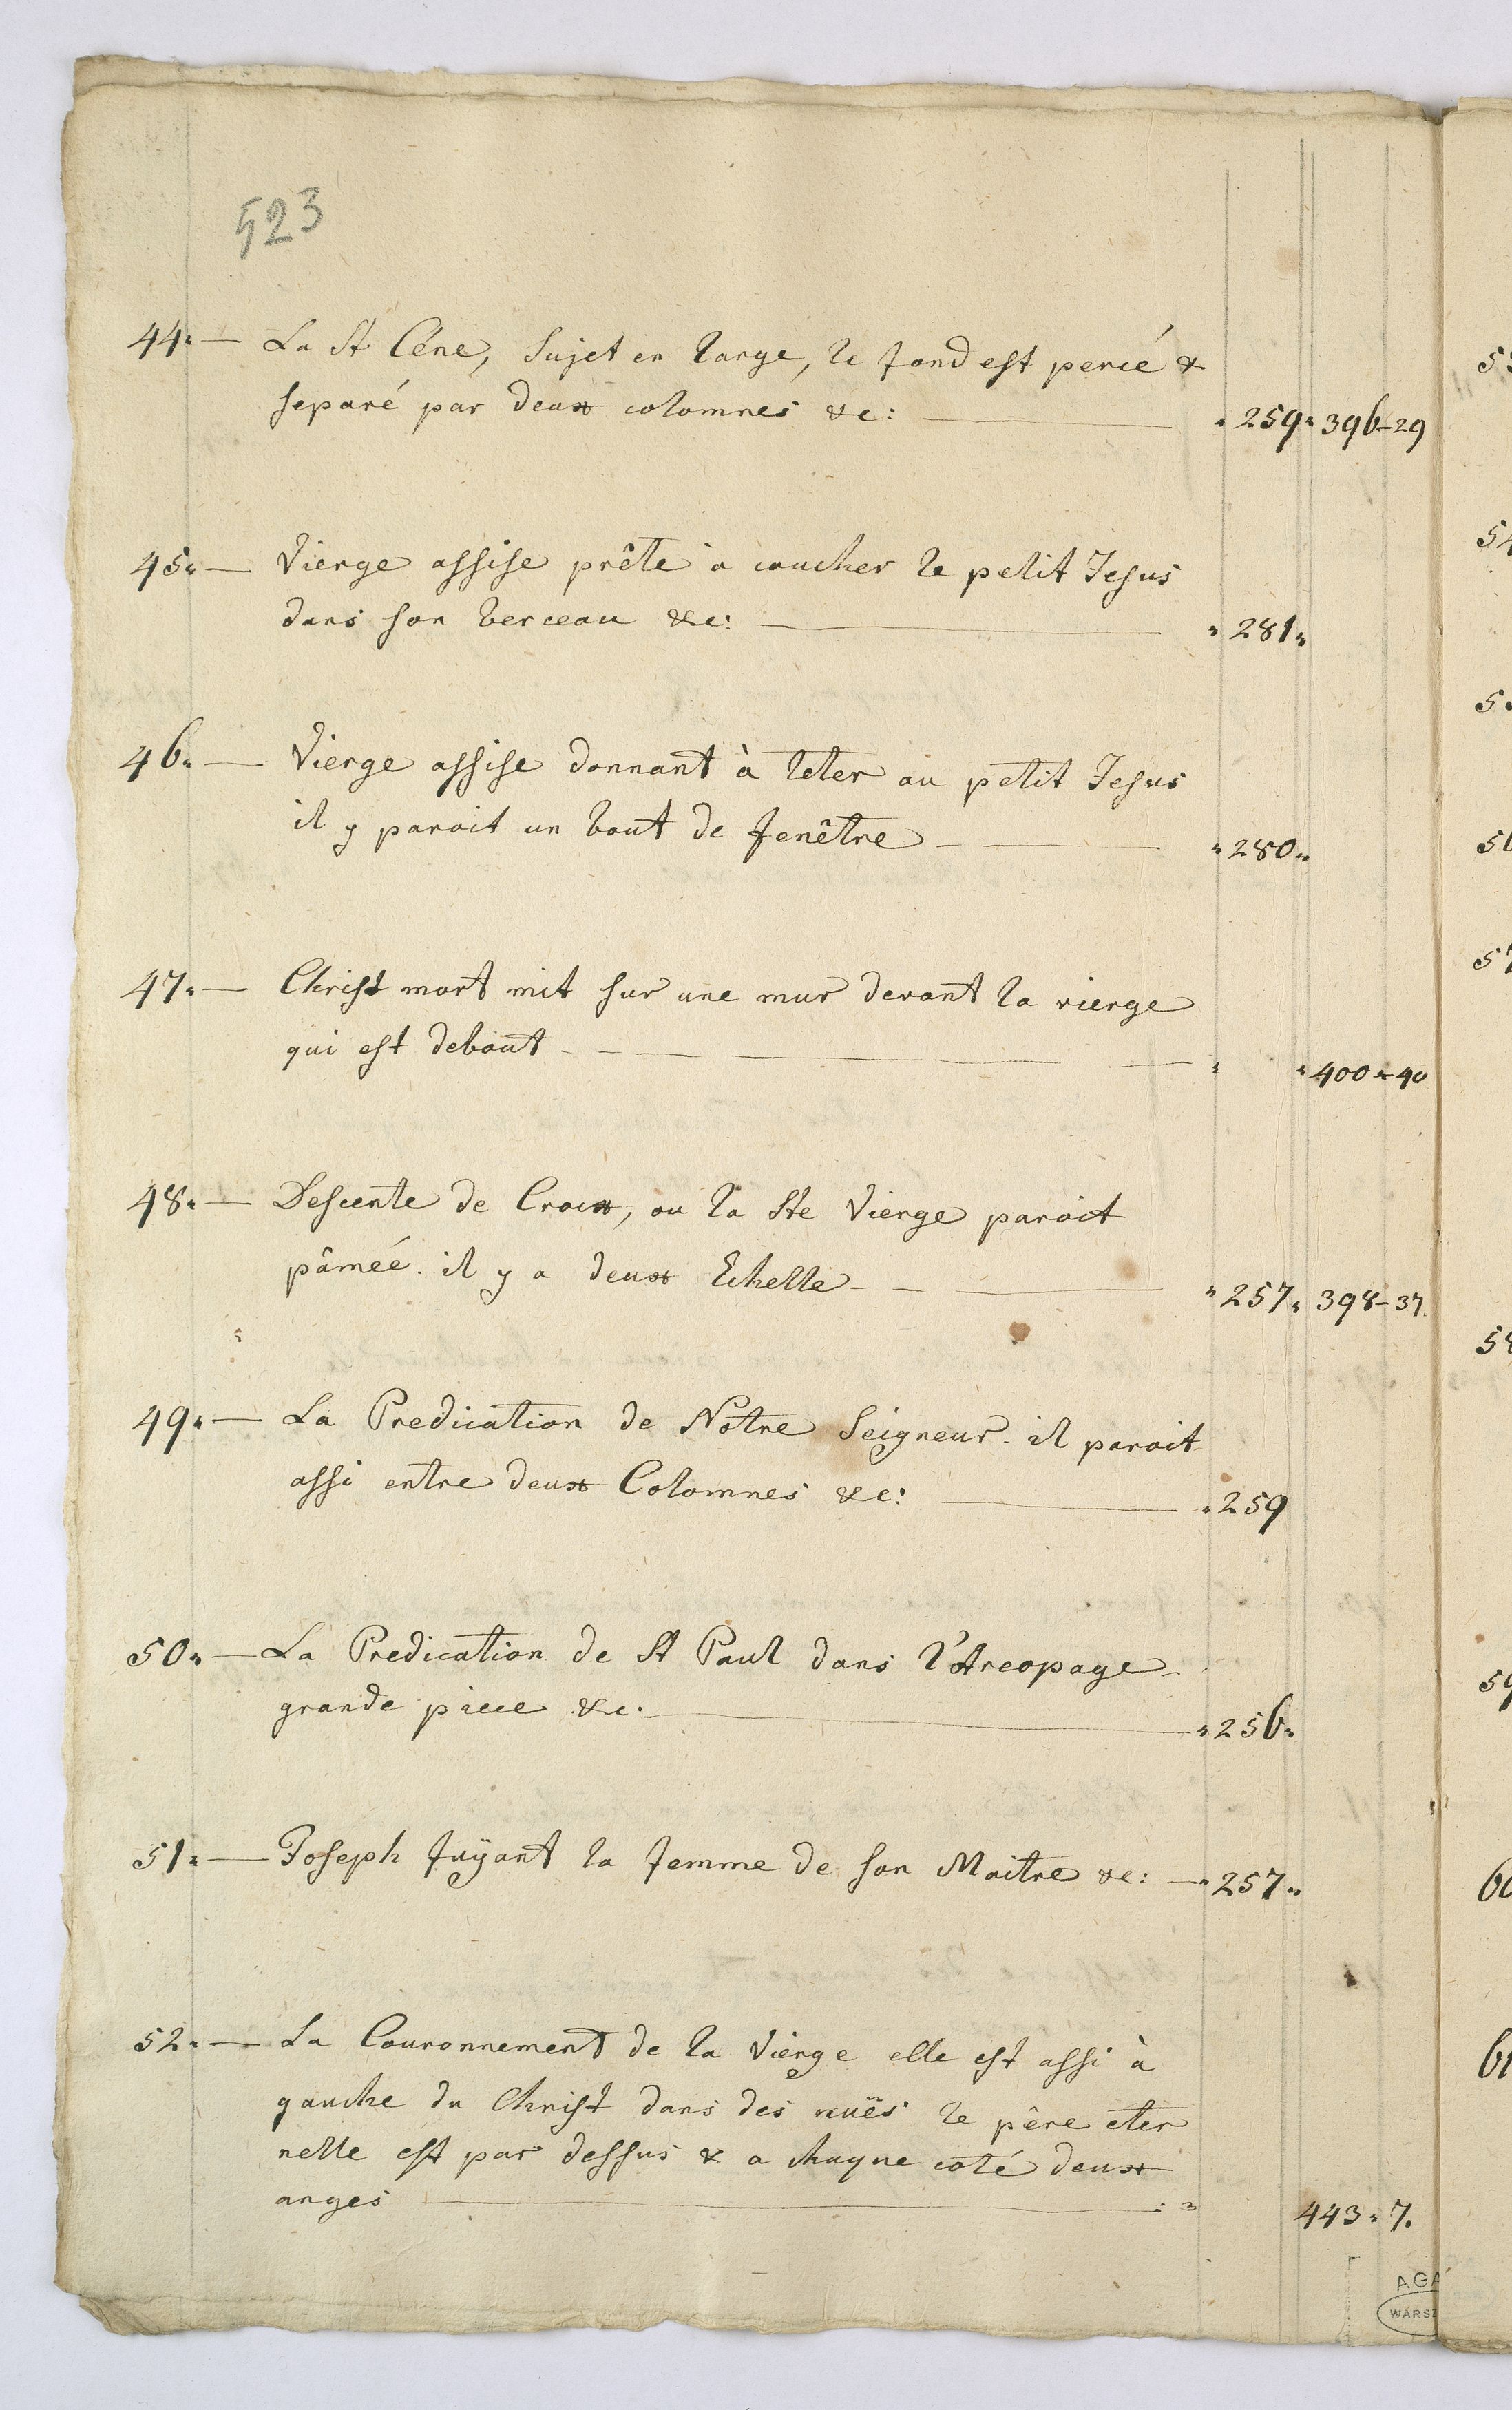 523
44. — La St Céne, Sujet en large, le fond est percé &
separé par deux colomnes &c: — 259. 396-29
45. — Vierge assise prête à coucher le petit Jesus
dans son berceau &c: — 281.
46. — Vierge assise donnant à teter au petit Jesus
il y paroit un bout de fenêtre — 280.
47. — Christ mort mit sur une mur devant la vierge
qui est debout — 400-40
48. — Descente de Croix, ou la Ste Vierge paroit
pâmeé. il y a deux Echelle — 257. 398-37.
49. — La Predication de Notre Seigneur. il paroit
assi entre deux Colomnes &c: — 259
50. — La Predication de St Paul dans l'Areopage
grande piece &c. — 256.
51. — Joseph fuÿant la femme de son Maitre &c: — 257.
52. — La Couronnement de la Vierge elle est assi à
gauche du Christ dans des nuës le pêre eter
nelle est par dessus & a chaque coté deux
anges — 443. 7.
AGA
WARS